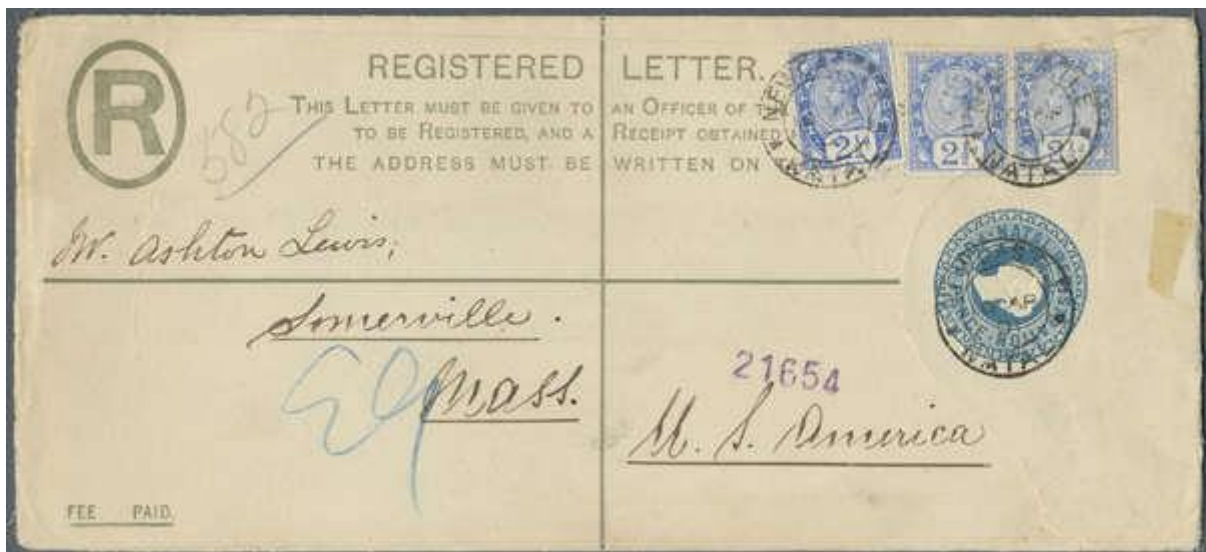 R
REGISTERED LETTER.
THIS LETTER MUST BE GIVEN TO AN OFFICER OF
TO BE REGISTERED, AND A RECEIPT OBTAINED
THE ADDRESS MUST BE WRITTEN ON
582
2½
2½
2½
NATAL
NATAL
W. Ashton Lewis,
Somerville.
Mass.
21654
U. S. America
NATAL
FEE PAID.